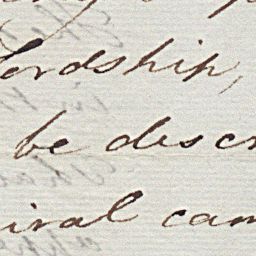 ordship,
be descr
iral cam